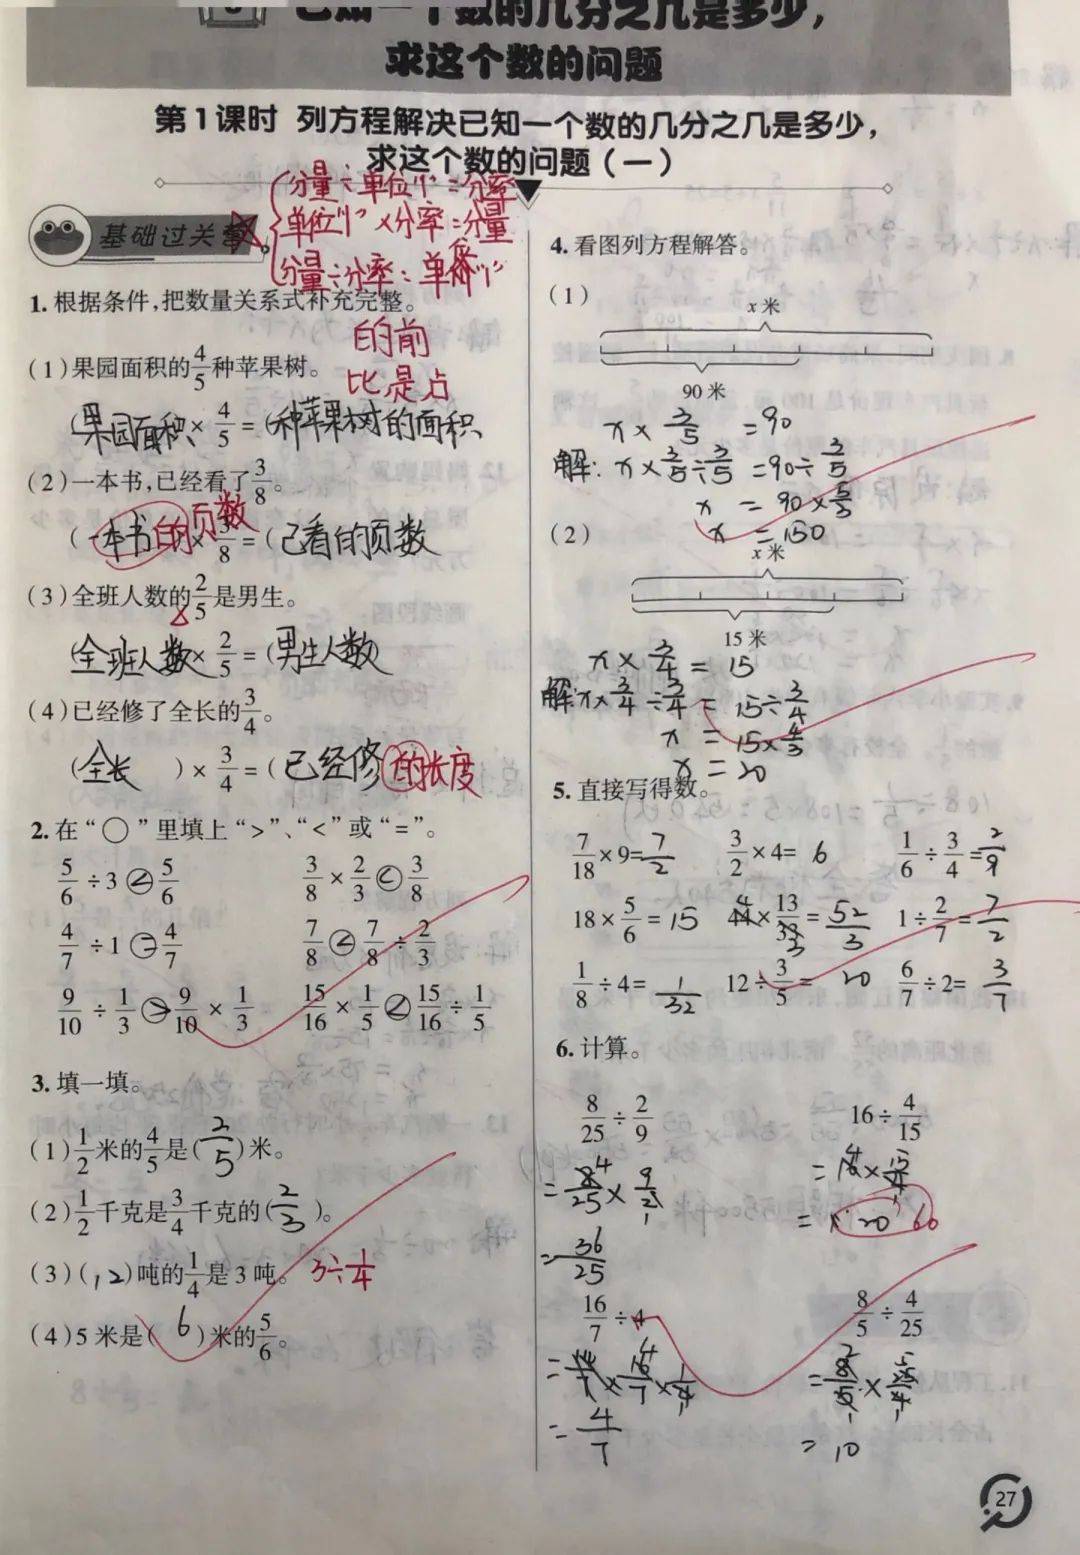 已知一个数的几分之几是多少，
求这个数的问题
第1课时 列方程解决已知一个数的几分之几是多少，
求这个数的问题（一）
基础过关
分量÷单位“1”=分率
单位“1”×分率=分量
分量÷分率=单位“1”
的前
比是占
1.根据条件，把数量关系式补充完整。
（1）果园面积的4/5种苹果树。
（果园面积×4/5=（种苹果树的面积
（2）一本书，已经看了3/8。
（一本书的页数×3/8=（已看的页数
（3）全班人数的2/5是男生。
（全班人数×2/5=（男生人数
（4）已经修了全长的3/4。
（全长）×3/4=（已经修的长度
2.在“○”里填上“>”、“<”或“=”。
5/6÷3<5/6 3/8×2/3<3/8
4/7÷1=4/7 7/8<7/8÷2/3
9/10÷1/3>9/10×1/3 15/16×1/5<15/16÷1/5
3.填一填。
（1）1/2米的4/5是（2/5）米。
（2）1/2千克是3/4千克的（2/3）。
（3）（12）吨的1/4是3吨。 3÷1/4
（4）5米是（6）米的5/6。
4.看图列方程解答。
（1）
x米
90米
x×3/5=90
解：x×3/5÷3/5=90÷3/5
x=90×5/3
x=150
（2）
x米
15米
x×3/4=15
解：x×3/4÷3/4=15÷3/4
x=15×4/3
x=20
5.直接写得数。
7/18×9=7/2 3/2×4=6 1/6÷3/4=2/9
18×5/6=15 44×13/33=52/3 1÷2/7=7/2
1/8÷4=1/32 12÷3/5=20 6/7÷2=3/7
6.计算。
8/25÷2/9 16÷4/15
=8/25×9/2 =16×15/4
=36/25 =20 60
16/7÷4 8/5÷4/25
=16/7×1/4 =8/5×25/4
=4/7 =10
27